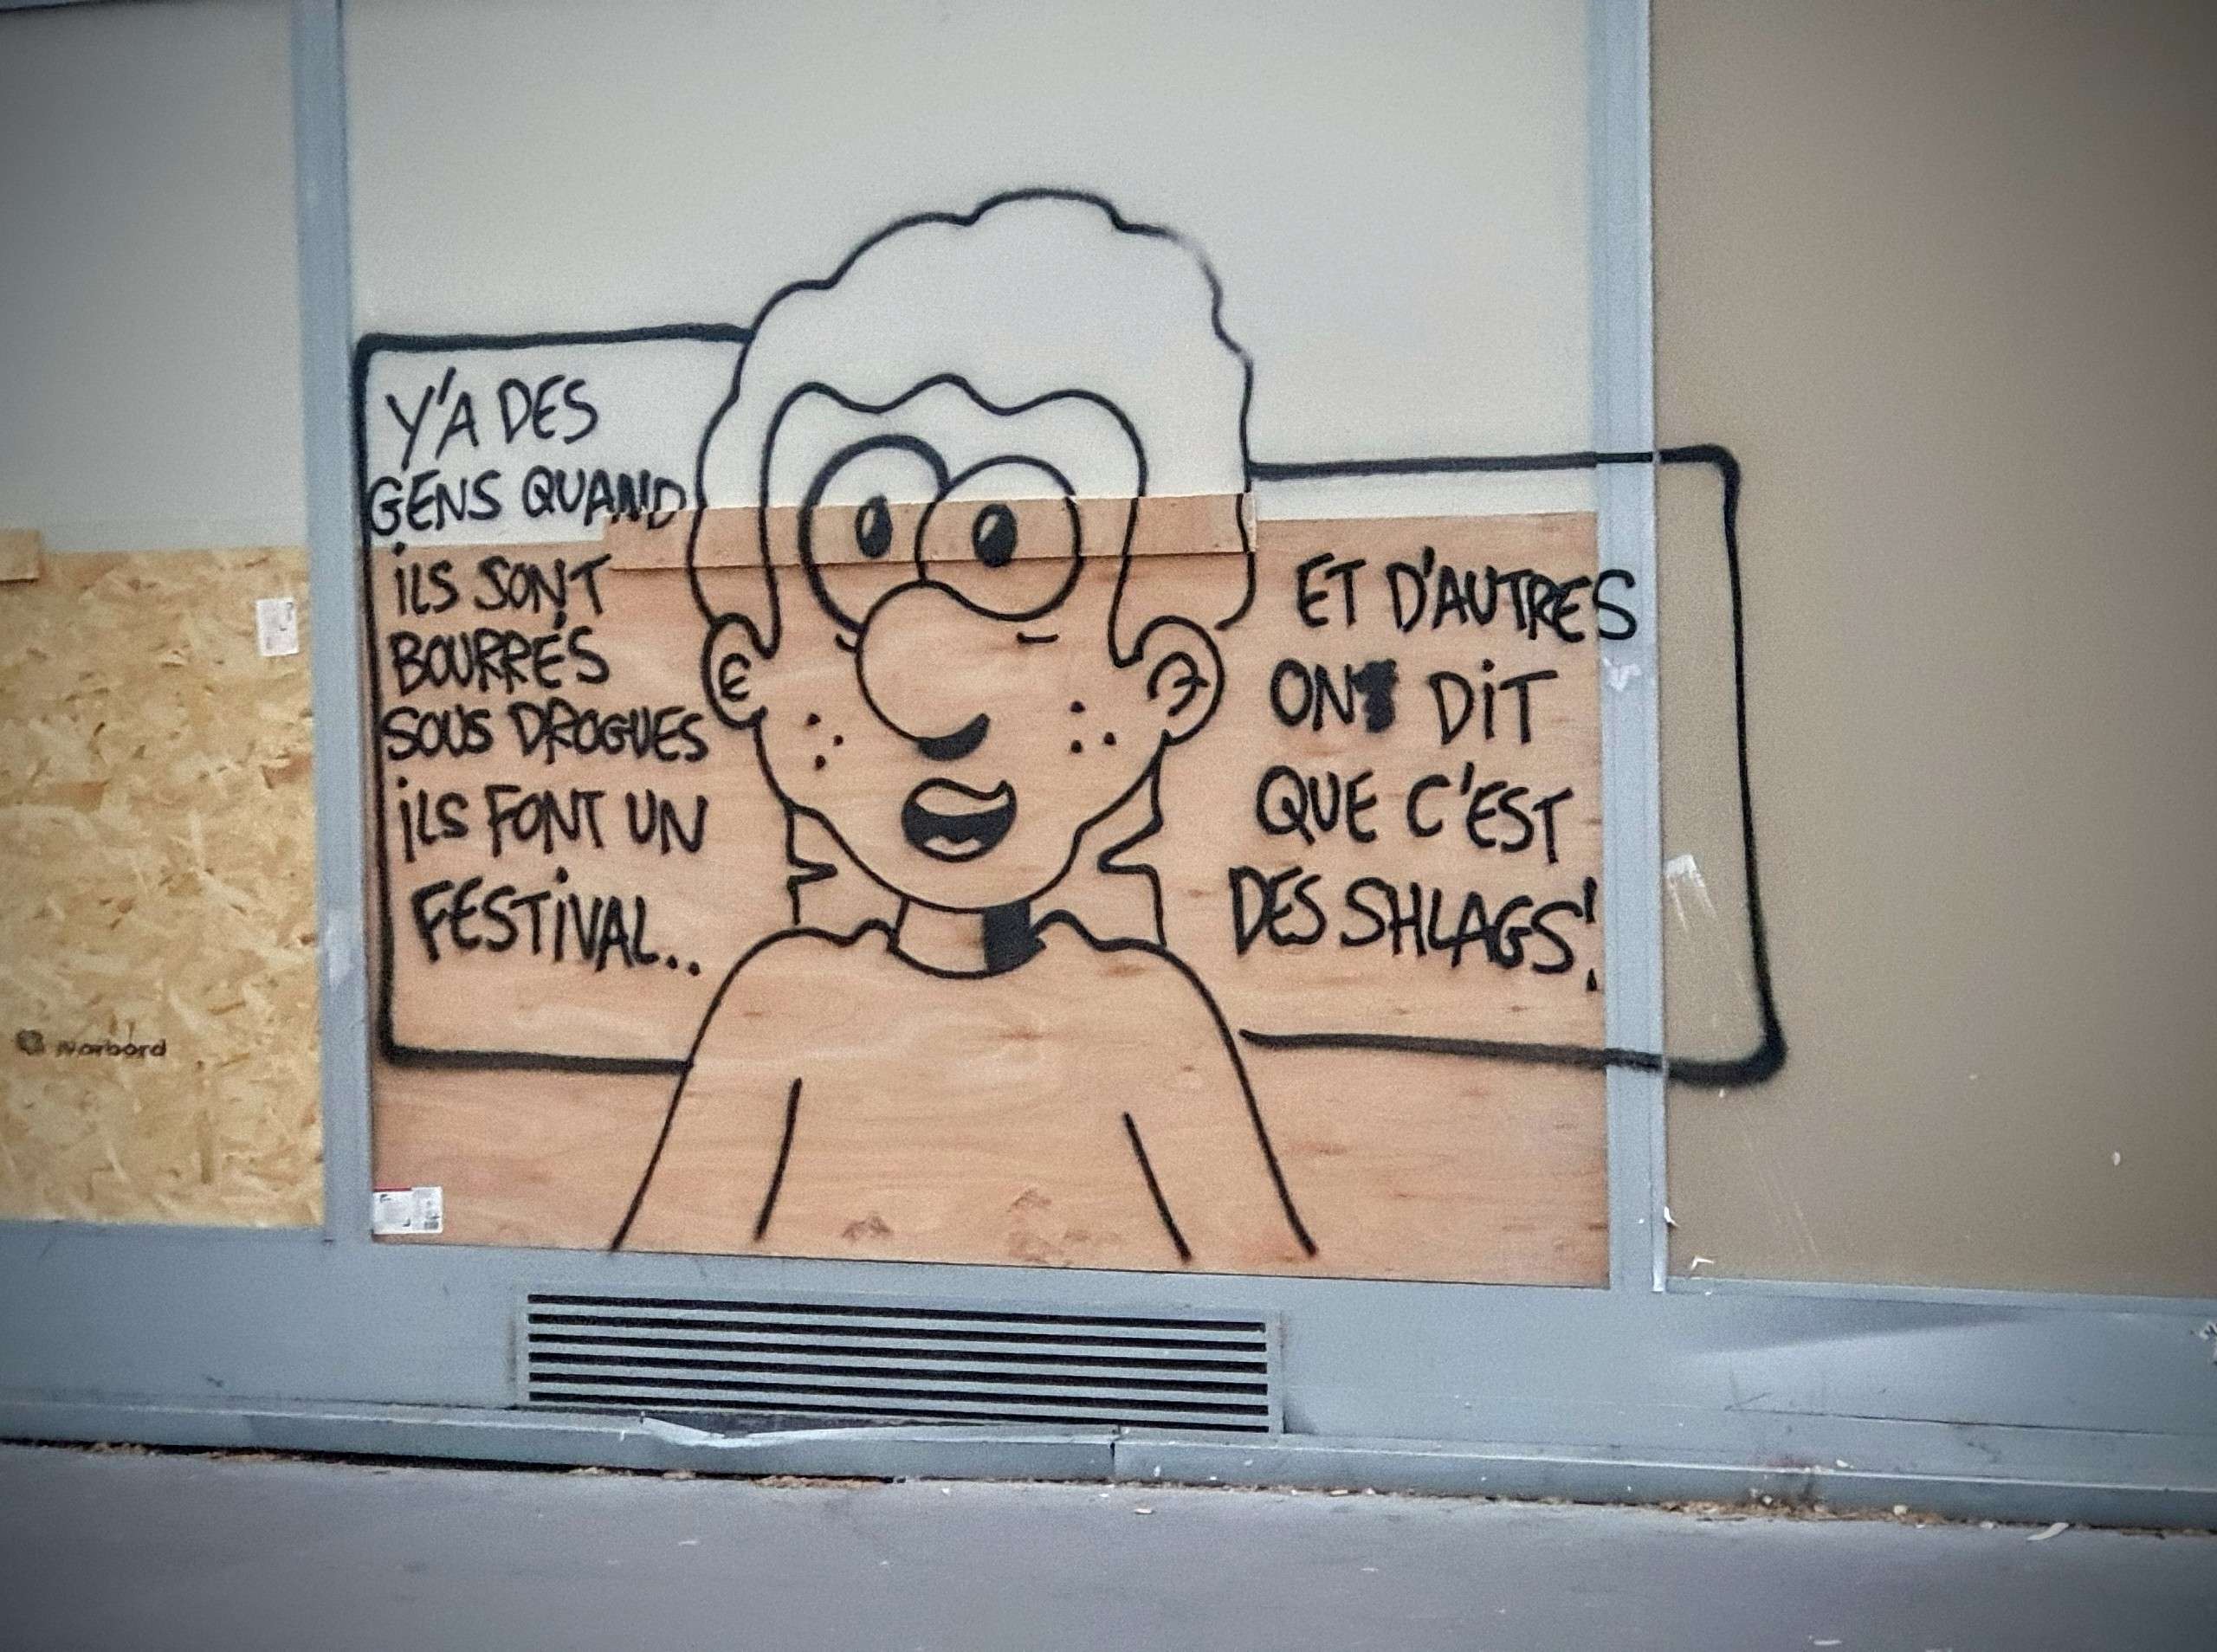 Y'A DES
GENS QUAND
iLS SONT
BOURRÉS
SOUS DROGUES
iLS FONT UN
FESTiVAL..
ET D'AUTRES
ON DiT
QUE C'EST
DES SHLAGS!
Norbord